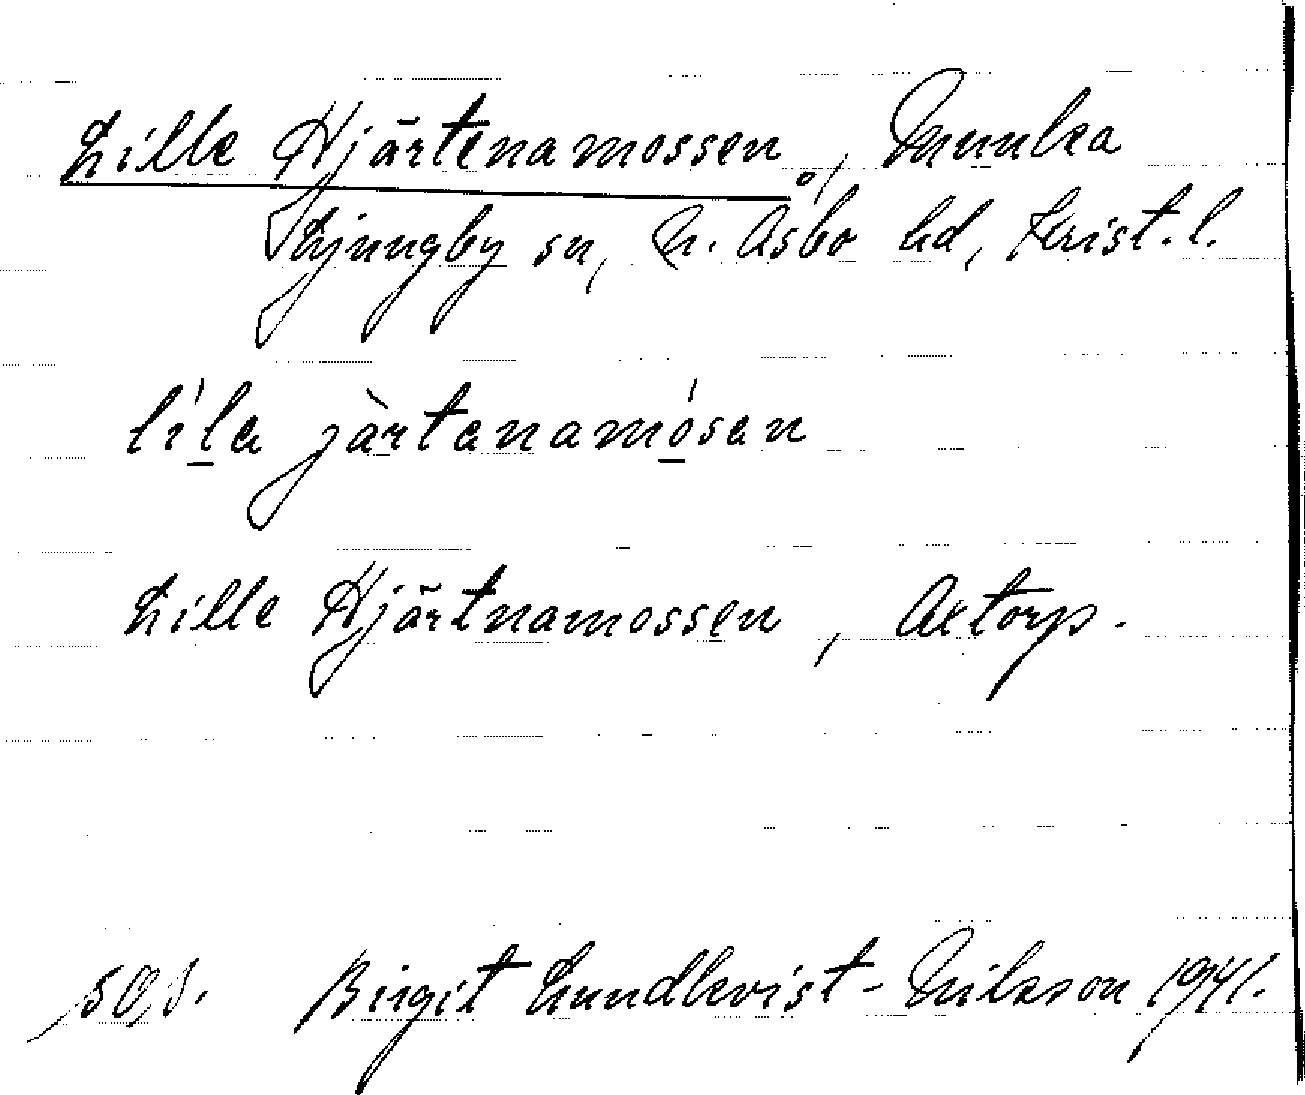 Lille Hjärtenamossen, Munka
Ljungby sn, N. Åsbo hd, Krist. l.
lı́la jàrtanamósan
Lille Hjärtnamossen, Axtorp.
Birgit Lundkvist-Nilsson 1941.